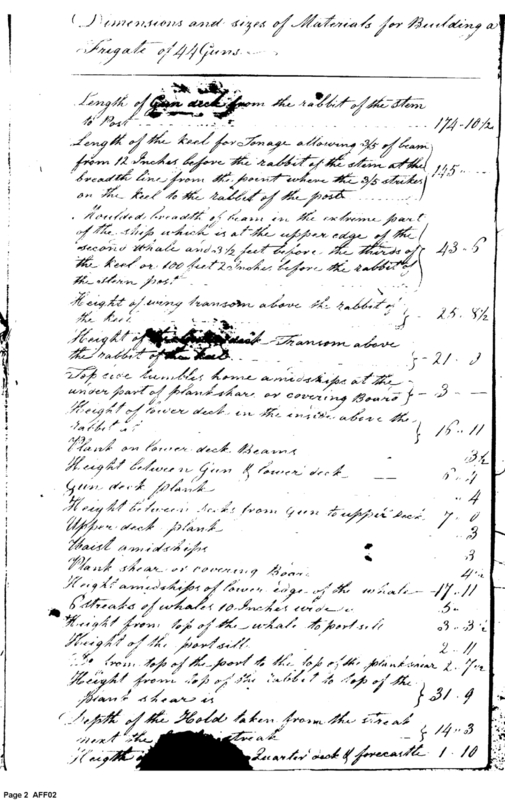 Dimensions and sizes of Materials for Building a
Frigate of 44 Guns
Length of Gun deck from the rabbit of the stem
to Post 174 - 10 1/2
Length of the keel for Tonage allowing 3/5 of beam
from 12 Inches before the rabbit of the stem at the
breadth line from the point where the 3/5 strikes
on the keel to the rabbit of the post 145
Moulded breadth of beam in the extreme part
of the ship which is at the upper edge of the
second whale and 3 1/2 feet before the thirds of
the keel or 100 feet 2 Inches before the rabbit of
the stern post 43 - 6
Height of wing transom above the rabbit of
the keel 25 .. 8 1/2
Height of deck Transom above
the rabbit of the keel 21 ..
Top side tumbles home amidships at the
under part of plank share or covering Board 3
Height of lower deck in the inside above the
rabbit is 11
Plank on lower deck Beams 3 1/2
Height between Gun & lower deck 6 .. 4
Gun deck plank .. 4
Height between decks from Gun to upper deck 7 ..
Upper deck plank 3
Waist amidships 3
Plank shear or covering Board
Height amidships of lower edge of the whale 17 .. 11
6 streaks of whales 10 Inches wide 5
Height from top of the whale to port sill 3 ..
Height of the port sill 2 .. 11
Do from top of the port to the top of the plank shear 2 ..
Height from top of the rabbet to top of the
plank shear is 31 .. 9
Depth of the Hold taken from the streak
next the streak 14 .. 3
Heigth Quarter deck & forecastle 1 .. 10
Page 2 AFF02